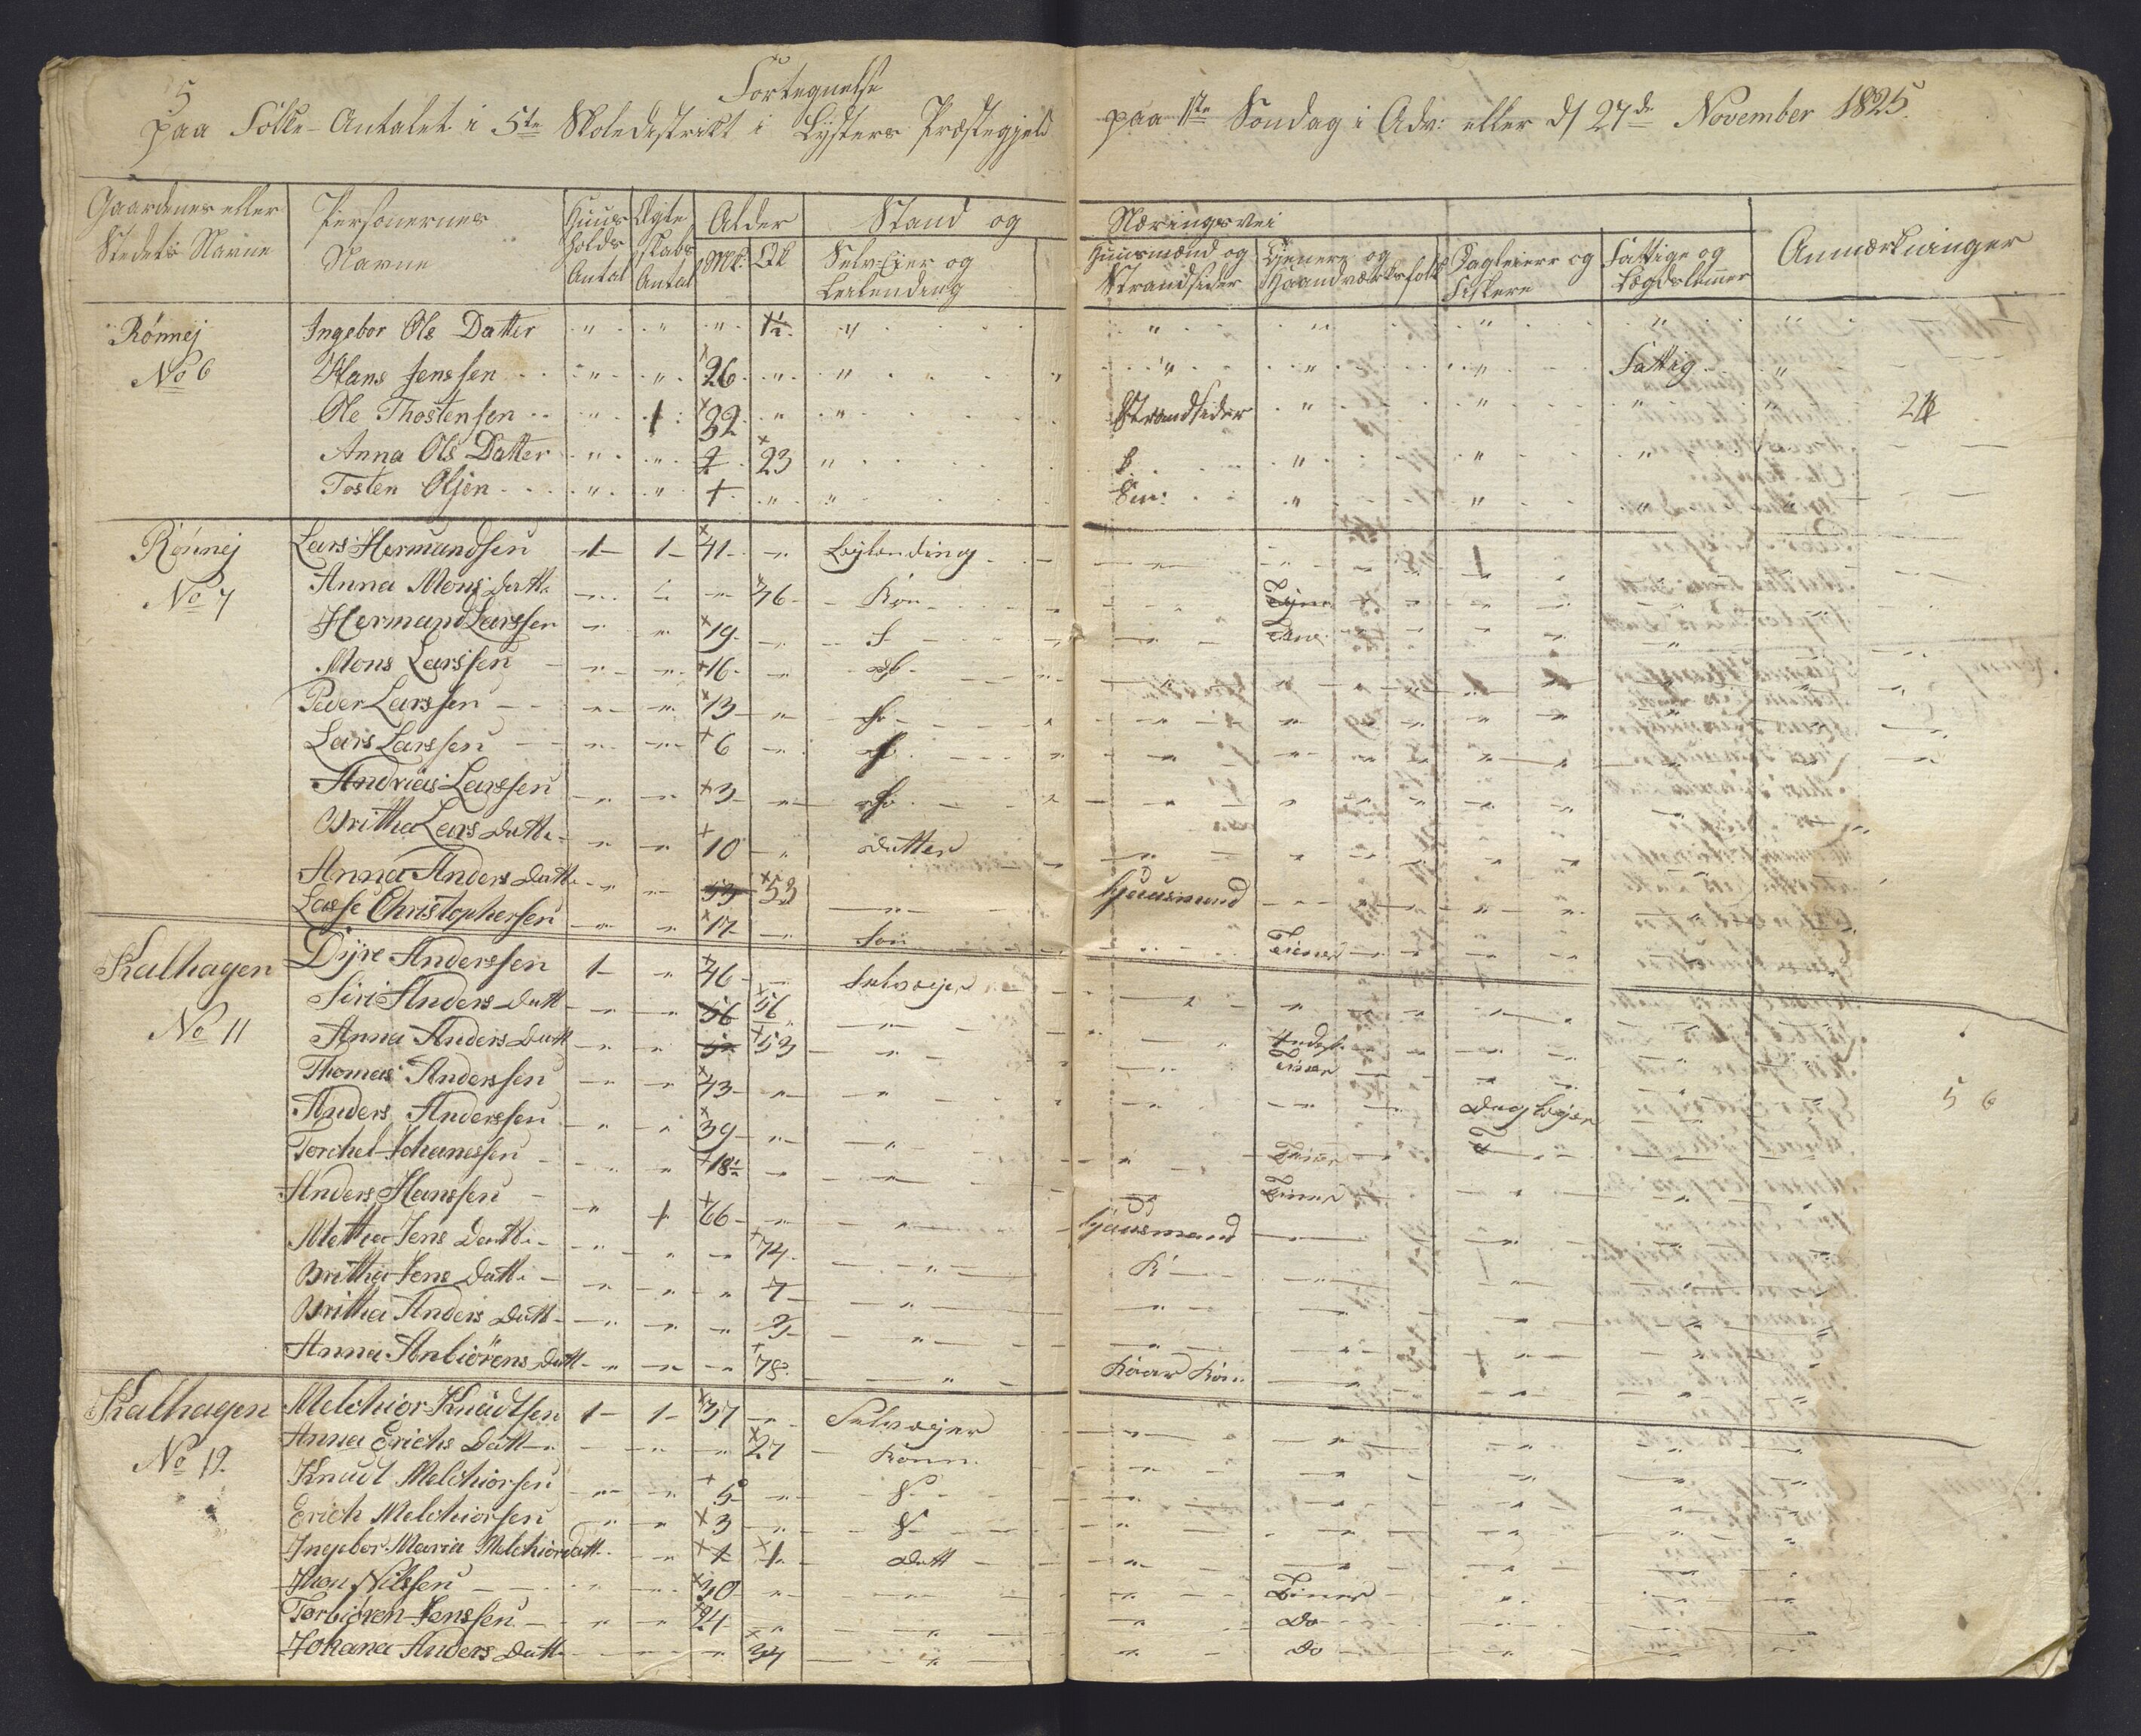 5
Fortegnelse
paa Folke-Antalet i 5te Skoledistrikt i Lysters Præstegjeld paa 1ste Søndag i Adv: eller d 27de November 1825.
Gaardenes eller Stedets Navne | Personernes Navne | Huus holds Antal | Ægte skabs Antal | Alder | Stand og Næringsvei | Anmærkninger
Mk: | Qk | Selv-Eier og Leilending | Huusmænd og Strandsider | Tjenere og Haandværksfolk | Dagleiere og Fiskere | Fattige og Lægdslemmer
Rönnej Ingebor Ols Datter " " " 1½ "
No 6 Hans Jenssen " " 26 " " Fattig
Ole Thostensen " 1 32 " " Strandsider 2
Anna Ols Datter " " 23 "
Tosten Olsen " " " "
Rönnej Lars Hermundsen 1 1 41 Leylending 1
No 7 Anna Mons Datt. 46 Kone
Hermund Larssen 19 S
Mons Larssen 16
Peder Larssen 13
Lars Larssen 6
Andrias Larssen 3
Britha Lars Datt. 10 Datter
Anna Anders Datt. 53 53 Huusmand
Lasse Christophersen 17 Søn Tiener
Kalhagen Dyre Anderssen 1 46 Selveyer
No 11 Siri Anders Datt 56 56
Anna Anders Datt 53
Thomas Anderssen 43 Tiener
Anders Anderssen 39 Dagleyer
Torchel Johanessen 18½ Tiener
Anders Hanssen 1 66 Huusmand Tiener
Metha Jens Datt. 74 K
Britha Jens Datt. 7
Britha Anders Datt.
Anna Anbiörens Datt 78 Kaar Kone
5 6
Kalhagen Melchior Knudtsen 1 1 37 Selveyer
No 12. Anna Erichs Datt 27 Konn.
Knudt Melchiorsen 5 S
Erich Melchiorsen 3 S
Ingebor Maria Melchiordatt. 1 Datt
Nilssen 30 Tiener
Torbiören Jenssen 24 Do
Johana Anders Datt. 34 Do